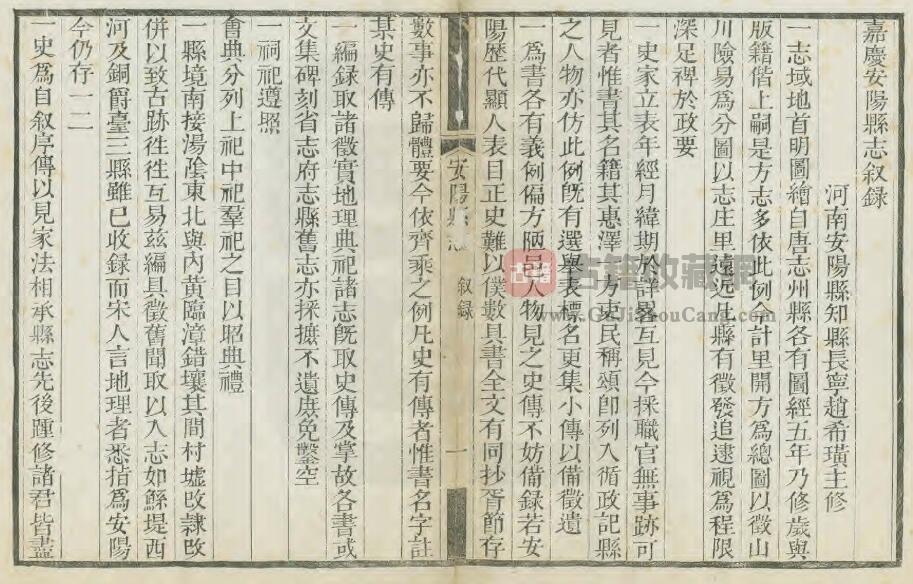 嘉慶安陽縣志叙录
河南安陽縣知縣長寧趙希璜主修
一志域地首明圖繪自唐志州縣各有圖經五年乃修歲與
版籍偕上嗣是方志多依此例今計里開方為總圖以徵山
川險易為分圖以志庄里遠近凡縣有徵發追逮視為程限
深足裨於政要
一史家立表年經月緯期於詳畧互見今採職官無事跡可
見者惟書其名籍其惠澤一方吏民稱頌卽列入循政記縣
之人物亦仿此例旣有選舉表標名更集小傳以備徵遺
一為書各有義例偏方陋邑人物見之史傳不妨備録若安
陽歷代顯人表目正史難以僕數具書全文有同抄胥節存
安陽縣志
叙録
一
數事亦不歸體要今依齊乘之例凡史有傳者惟書名字註
某史有傳
一編録取諸徵實地理典祀諸志旣取史傳及掌故各書或
文集碑刻省志府志縣舊志亦採摭不遺庶免鑿空
一祠祀遵照
會典分列上祀中祀羣祀之目以昭典禮
一縣境南接湯陰東北與內黃臨漳錯壤其間村墟改隷改
併以致古跡徃徃互易兹編具徵舊聞取以入志如鯀堤西
河及銅爵臺三縣雖已收録而宋人言地理者悉指為安陽
今仍存一二
一史為自叙序傳以見家法相承縣志先後踵修諸君皆盡
古籍
古籍收藏网
www.GuJiShouCang.com